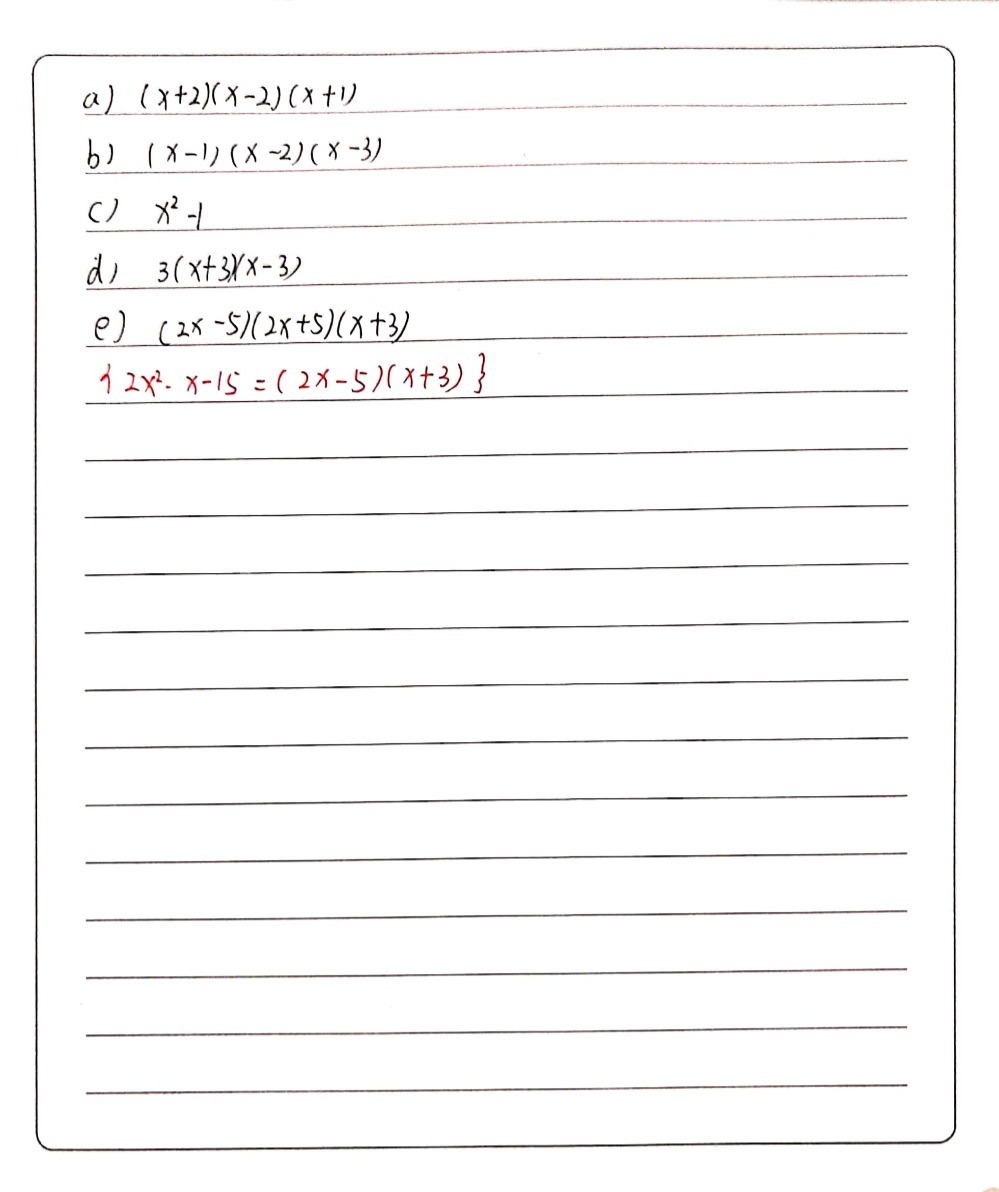 a) (x+2)(x-2)(x+1)
b) (x-1)(x-2)(x-3)
c) x²-1
d) 3(x+3)(x-3)
e) (2x-5)(2x+5)(x+3)
{2x²-x-15=(2x-5)(x+3)}